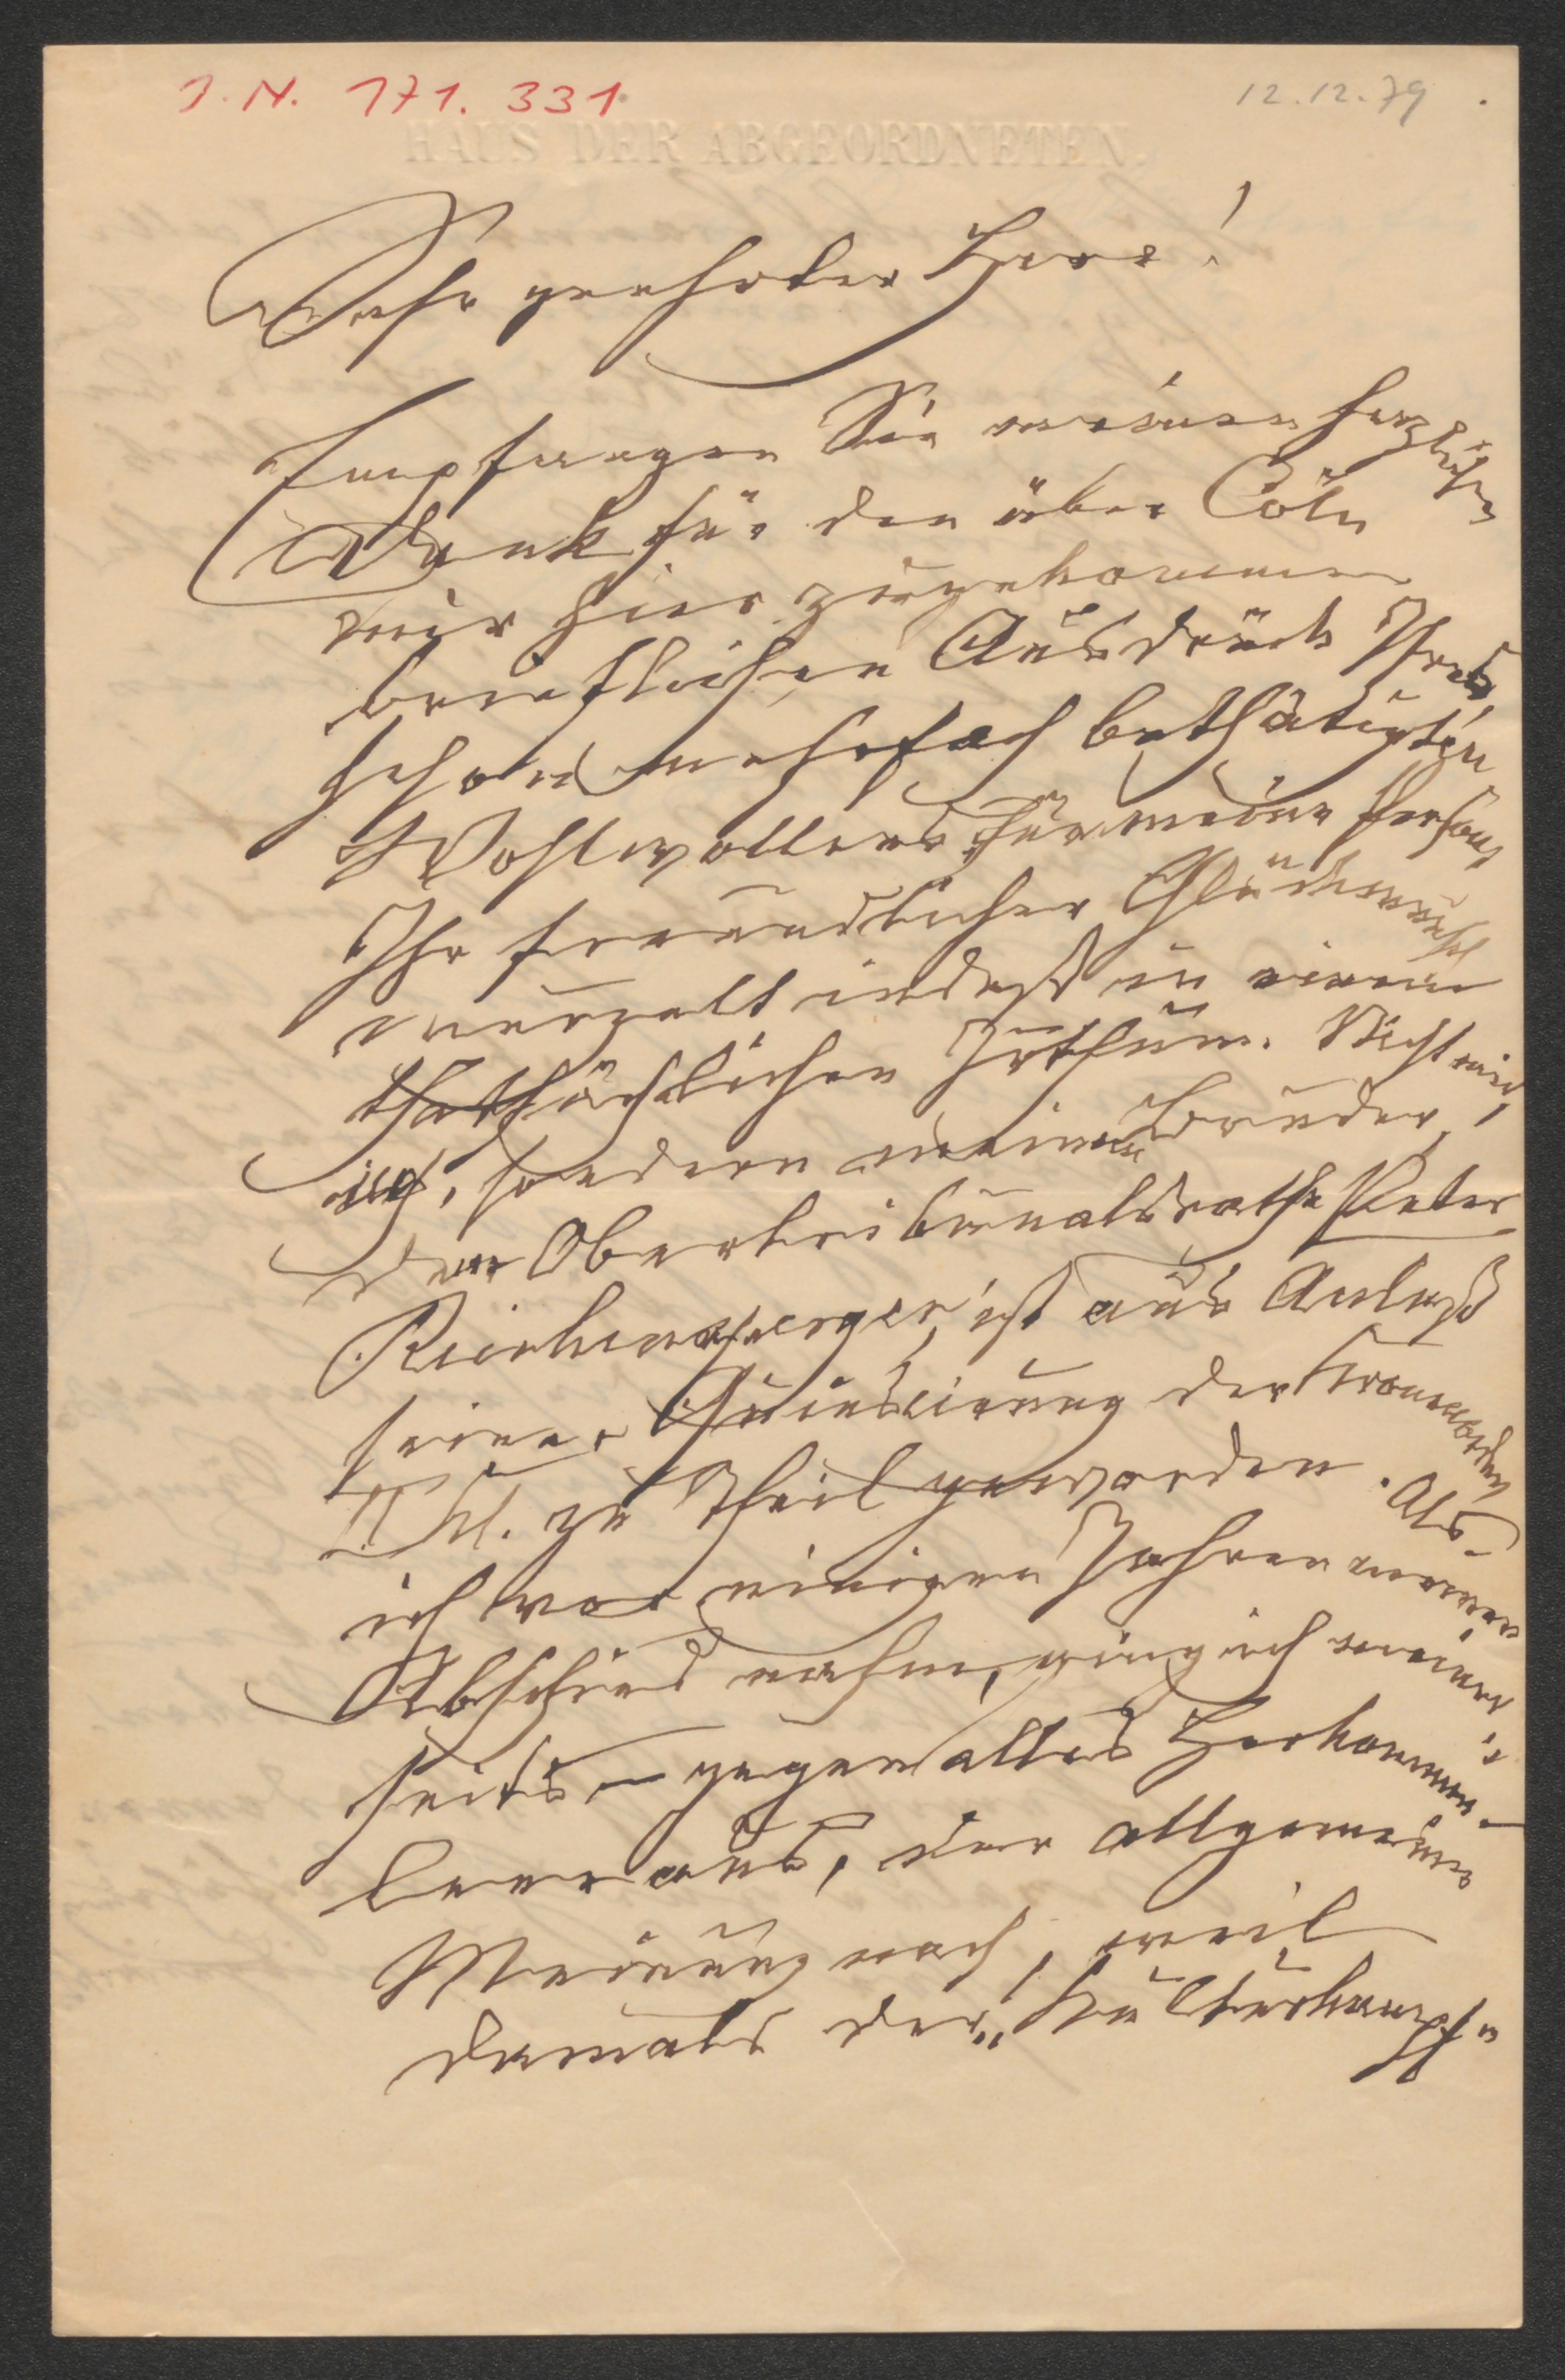 I. N. 171.331
12.12.79
HAUS DER ABGEORDNETEN.
Sehr geehrter Herr!
Empfangen Sie meinen herzlichen
Dank für den über Cöln
mir hier zugekommenen
brieflichen Ausdruck Ihres
schon mehrfach bethätigten
Wohlwollens für meine Person,
Ihr freundlicher Glückwunsch
wurzelt indeß in einem
thatsächlichen Irrthum. Nicht mir,
sondern meinem Bruder,
dem Obertribunalsrathe Peter
Reichensperger, ist aus Anlaß
seiner Quiescirung der Kronenorden
II Kl. zu Theil geworden. Als
ich vor einigen Jahren meinen
Abschied nahm, ging ich meiner-
seits – gegen alles Herkommen –
leer aus, der allgemeinen
Meinung nach, weil
damals der „Kulturkampf"